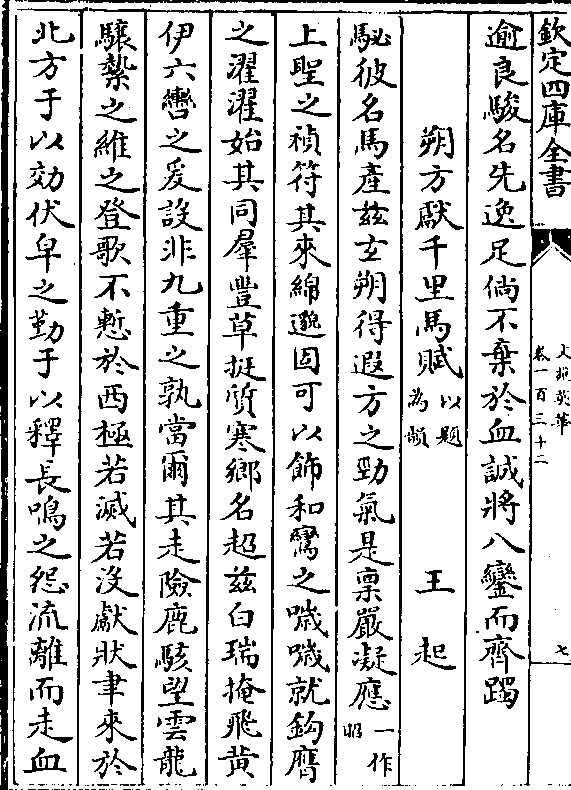 欽定四庫全書
文苑英華
卷一百三十二
七
逾良駿名先逸足倘不棄於血誠將八鑾而齊躅
朔方獻千里馬賦以題為韻 王起
駜彼名馬產茲玄朔得遐方之勁氣是禀嚴凝應一作昭
上聖之禎符其來綿邈固可以飾和鸞之噦噦就鈎膺
之濯濯始其同羣豐草挺質寒鄉名超茲白瑞掩飛黃
伊六轡之爰設非九重之孰當爾其走險鹿駭望雲龍
驤縶之維之登歌不慙於西極若滅若沒獻狀聿來於
北方于以効伏皁之勤于以釋長鳴之怨流離而走血